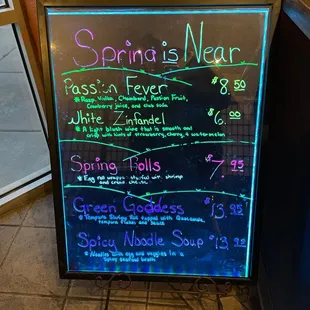 Spring is Near
Passion Fever $8.50
Rasp. Vodka, Chambord, Passion Fruit,
Cranberry juice, and club soda
White Zinfandel $6.00
A light blush wine that is smooth and
crisp with hints of strawberry, cherry, & watermelon
Spring Rolls $7.95
Egg roll wrapper stuffed w/ shrimp
and cream cheese
Green Goddess $13.95
Tempura Shrimp Roll topped with Guacamole,
tempura flakes and sauce
Spicy Noodle Soup $13.95
Noodles with egg and veggies in a
spicy seafood broth